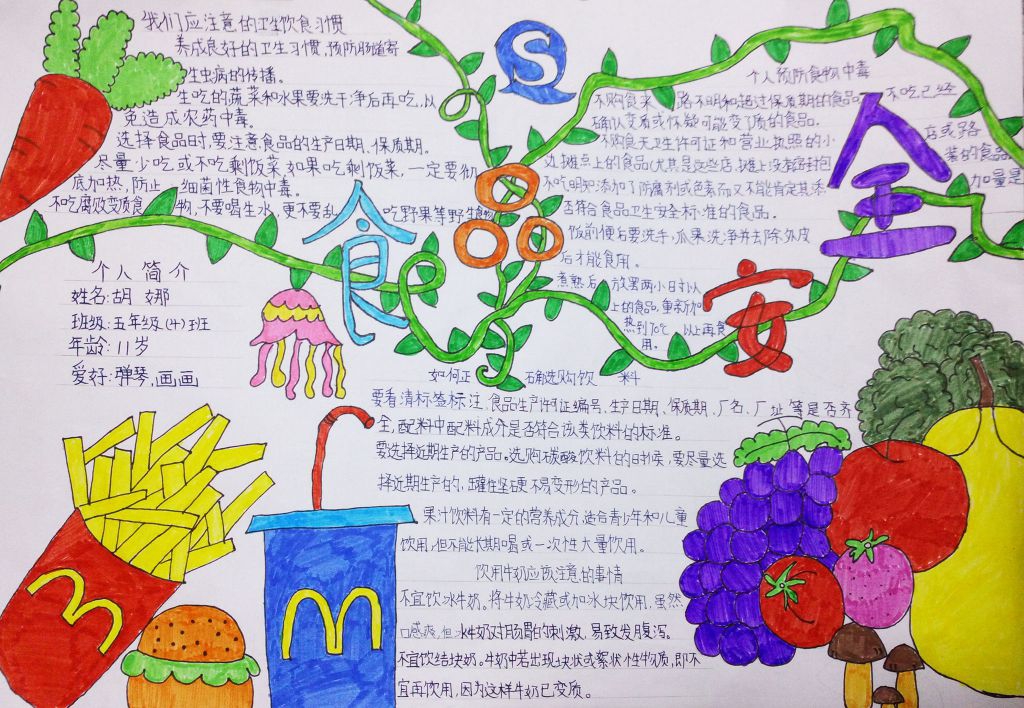 我们应注意的卫生饮食习惯
养成良好的卫生习惯,预防肠道寄
生虫病的传播。
生吃的蔬菜和水果要洗干净后再吃,以
免造成农药中毒。
选择食品时,要注意食品的生产日期、保质期。
尽量少吃或不吃剩饭菜,如果吃剩饭菜,一定要彻
底加热,防止 细菌性食物中毒。
不吃腐败变质食 物,不要喝生水,更不要乱 吃野果等野生食物
S
食品安全
个人预防食物中毒
不购食来 路不明和超过保质期的食品 不吃已经
确认变质或怀疑可能变了质的食品。
不购食无卫生许可证和营业执照的小 店或路
边摊点上的食品(尤其是这些店、摊上没有密封包 装的食品
不吃明知添加了防腐剂或色素而又不能肯定其添 加量是
否符合食品卫生安全标准的食品。
饭前便后要洗手,瓜果洗净并去除外皮
后才能食用。
煮熟后 放置两小时以
上的食品,重新加
热到70℃ 以上再食
用。
个人简介
姓名:胡 娜
班级:五年级(4)班
年龄:11岁
爱好:弹琴,画画
如何正 确选购饮 料
要看清标签标注,食品生产许可证编号、生产日期、保质期、厂名、厂址等是否齐
全,配料中配料成分是否符合该类饮料的标准。
要选择近期生产的产品。选购碳酸饮料的时候,要尽量选
择近期生产的,罐体坚硬不易变形的产品。
果汁饮料有一定的营养成分,适合青少年和儿童
饮用,但不能长期喝或一次性大量饮用。
饮用牛奶应该注意的事情
不宜饮冰牛奶。将牛奶冷藏或加冰块饮用,虽然
口感爽,但冰牛奶对肠胃的刺激,易致发腹泻。
不宜饮结块奶。牛奶中若出现块状或絮状性物质,即不
宜再饮用,因为这样牛奶已变质。
M
M